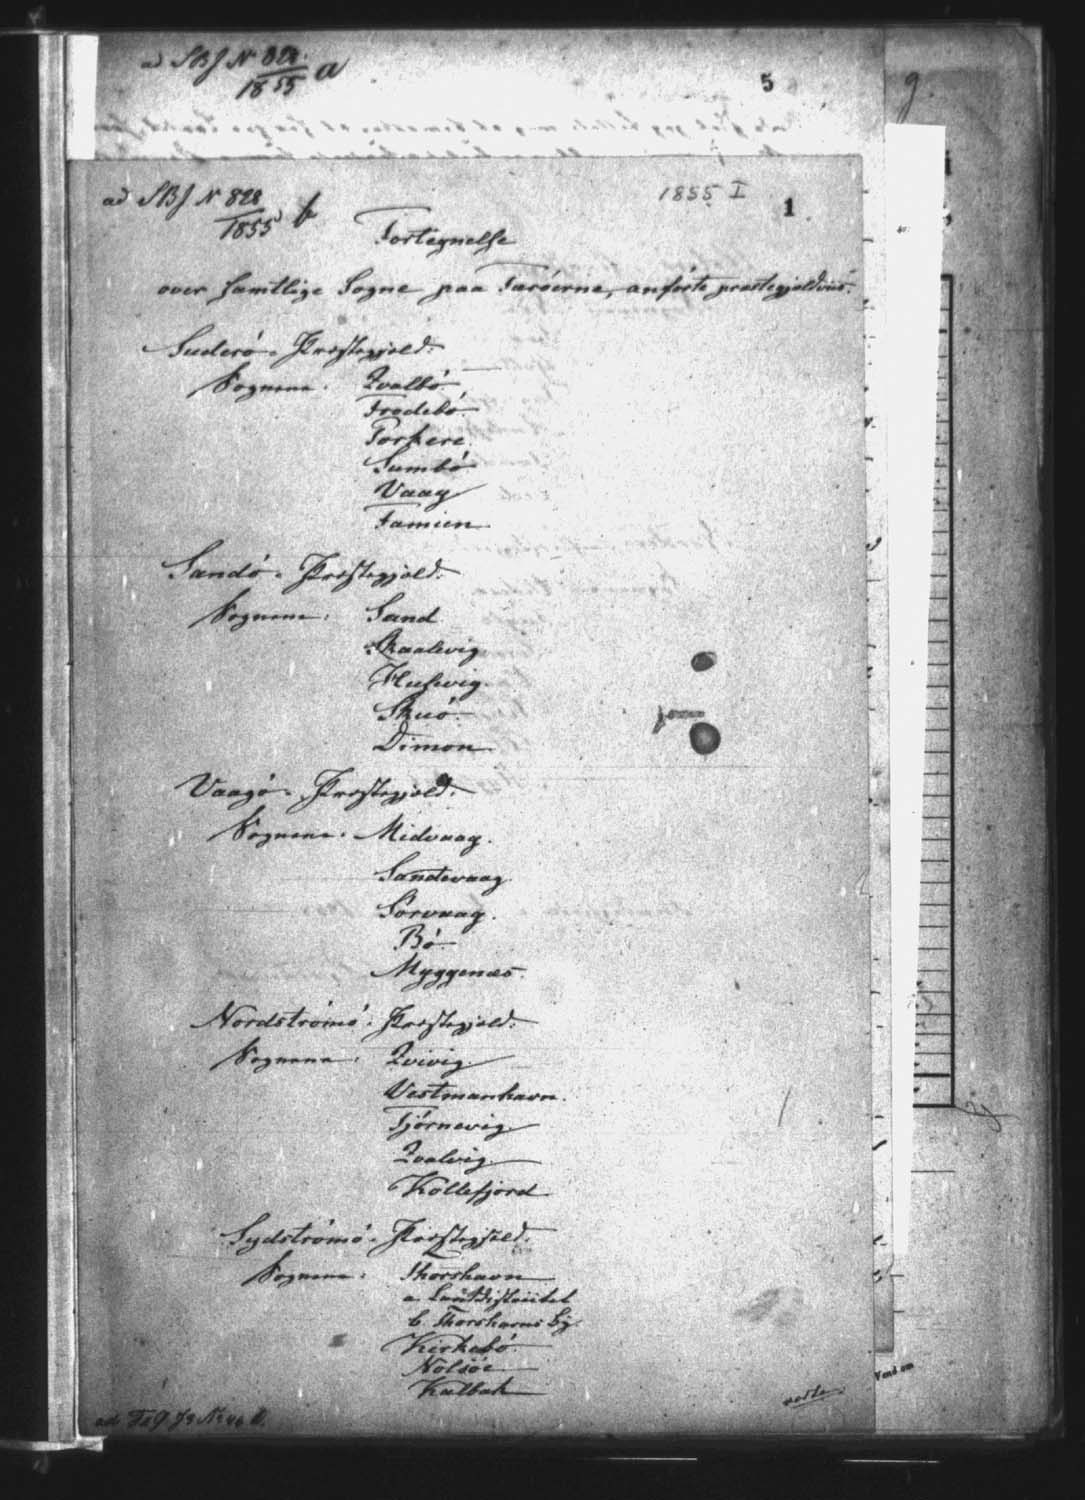 ad SBJ N 828
1855 a
5
9.
ad SBJ N 828
1855 b
1855 I
1
Fortegnelse
over samtlige Sogne paa Færöerne, anförte præstegjeldviis.
Suderö-Præstegjeld.
Sognene: Qvalbö
Frodebö.
Porkere.
Sumbö
Vaag
Famien
Sandö-Præstegjeld.
Sognene: Sand
Skaalevig
Husevig.
Skuö.
Dimon
Vaagö-Præstegjeld.
Sognene: Midvaag.
Sandevaag
Sörvaag.
Bö.
Myggenæs.
Nordströmö-Præstegjeld.
Sognene: Qvivig
Vestmanhavn.
Tjörnevig
Qvalvig
Kollefjord
Sydströmö-Præstegjeld.
Sognene: Thorshavn
a. Landdistrictet
b. Thorshavns By.
Kirkebö.
Nolsöe
Kalbak
vedte
Vend om